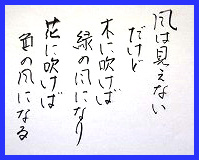 風は見えない
だけど
木に吹けば
緑の風になり
花に吹けば
色の風になる